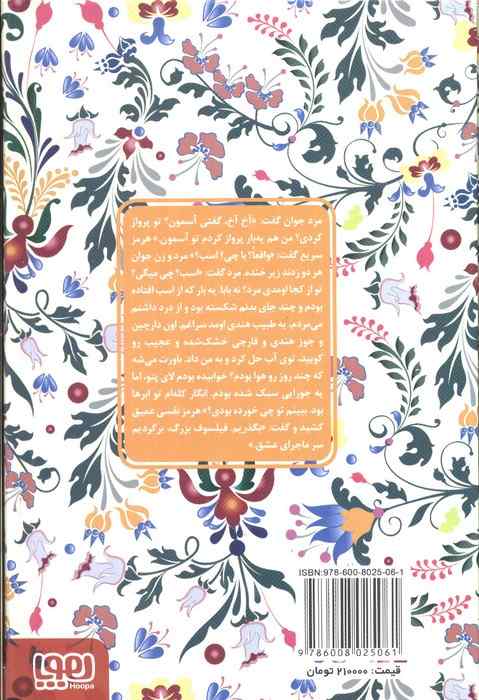 مرد جوان گفت: «آخ آخ، گفتی آسمون؟ تو پرواز
کردی؟ من هم یه‌بار پرواز کردم تو آسمون.» هرمز
سریع گفت: «واقعا؟ با چی؟ اسب؟» مرد و زن جوان
هر دو زدند زیر خنده. مرد گفت: «اسب؟ چی میگی؟
تو از کجا اومدی مرد؟ نه بابا. یه بار که از اسب افتاده
بودم و چند جای بدنم شکسته بود و از درد داشتم
می‌مردم، یه طبیب هندی اومد سراغم. اون دارچین
و جوز هندی و قارچی خشک‌شده و عجیب رو
کوبید، توی آب حل کرد و به من داد. باورت می‌شه
که چند روز رو هوا بودم؟ خوابیده بودم لای پتو، اما
یه جورایی سبک شده بودم. انگار کله‌ام تو ابرها
بود. ببینم تو چی خورده بودی؟» هرمز نفسی عمیق
کشید و گفت: «بگذریم. فیلسوف بزرگ، برگردیم
سر ماجرای عشق.»
ISBN:978-600-8025-06-1
9 786008 025061
قیمت: ۲۱۰۰۰۰ تومان
هوپا
Hoopa